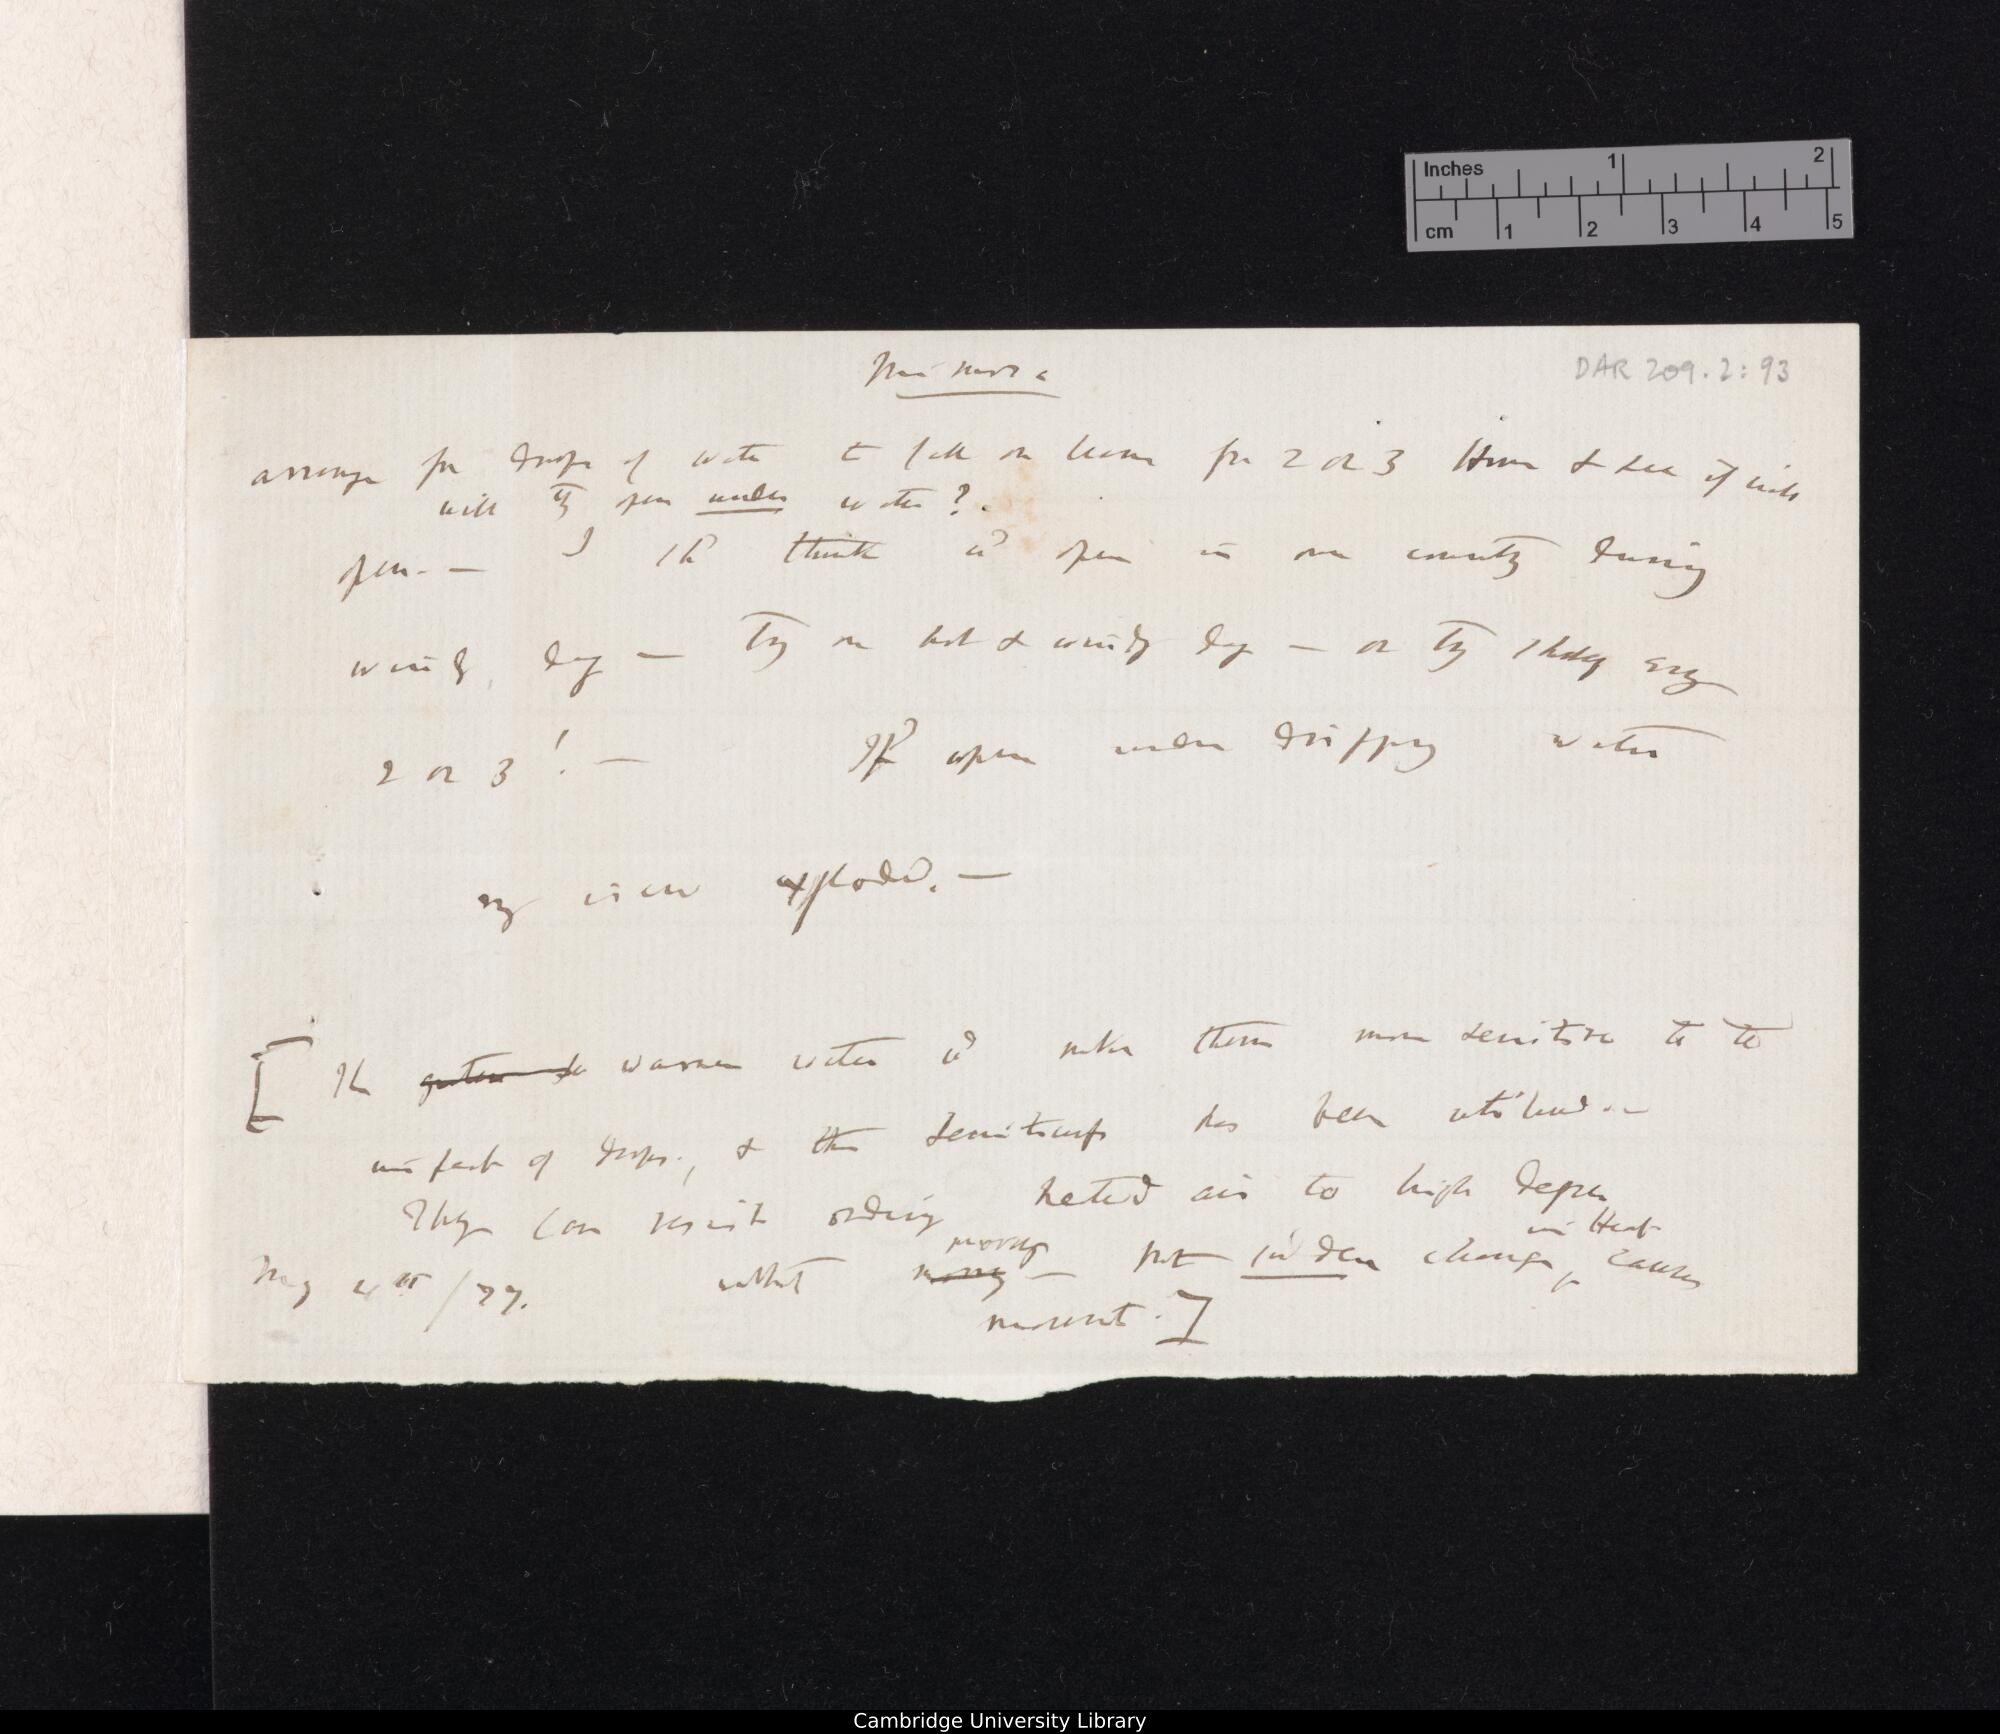 Inches 1 2
cm 1 2 3 4 5
Mimosa
DAR 209.2:93
arrange for drops of water to fall on leaves for 2 or 3 Hours & see if will
will they open under water?
open. — I shd think wd open in own country during
windy day — Try on hot & windy day — or try shady
2 or 3! — If open under dripping water
my view exploded. —
[The warmer water wd make them more sensitive to the
impact of drops, & this sensitiveness has been utilised. —
They can resist ordinary heated air to high degree
in Heat
May 4th /77. without moving — but sudden change, causes
movement.]
Cambridge University Library